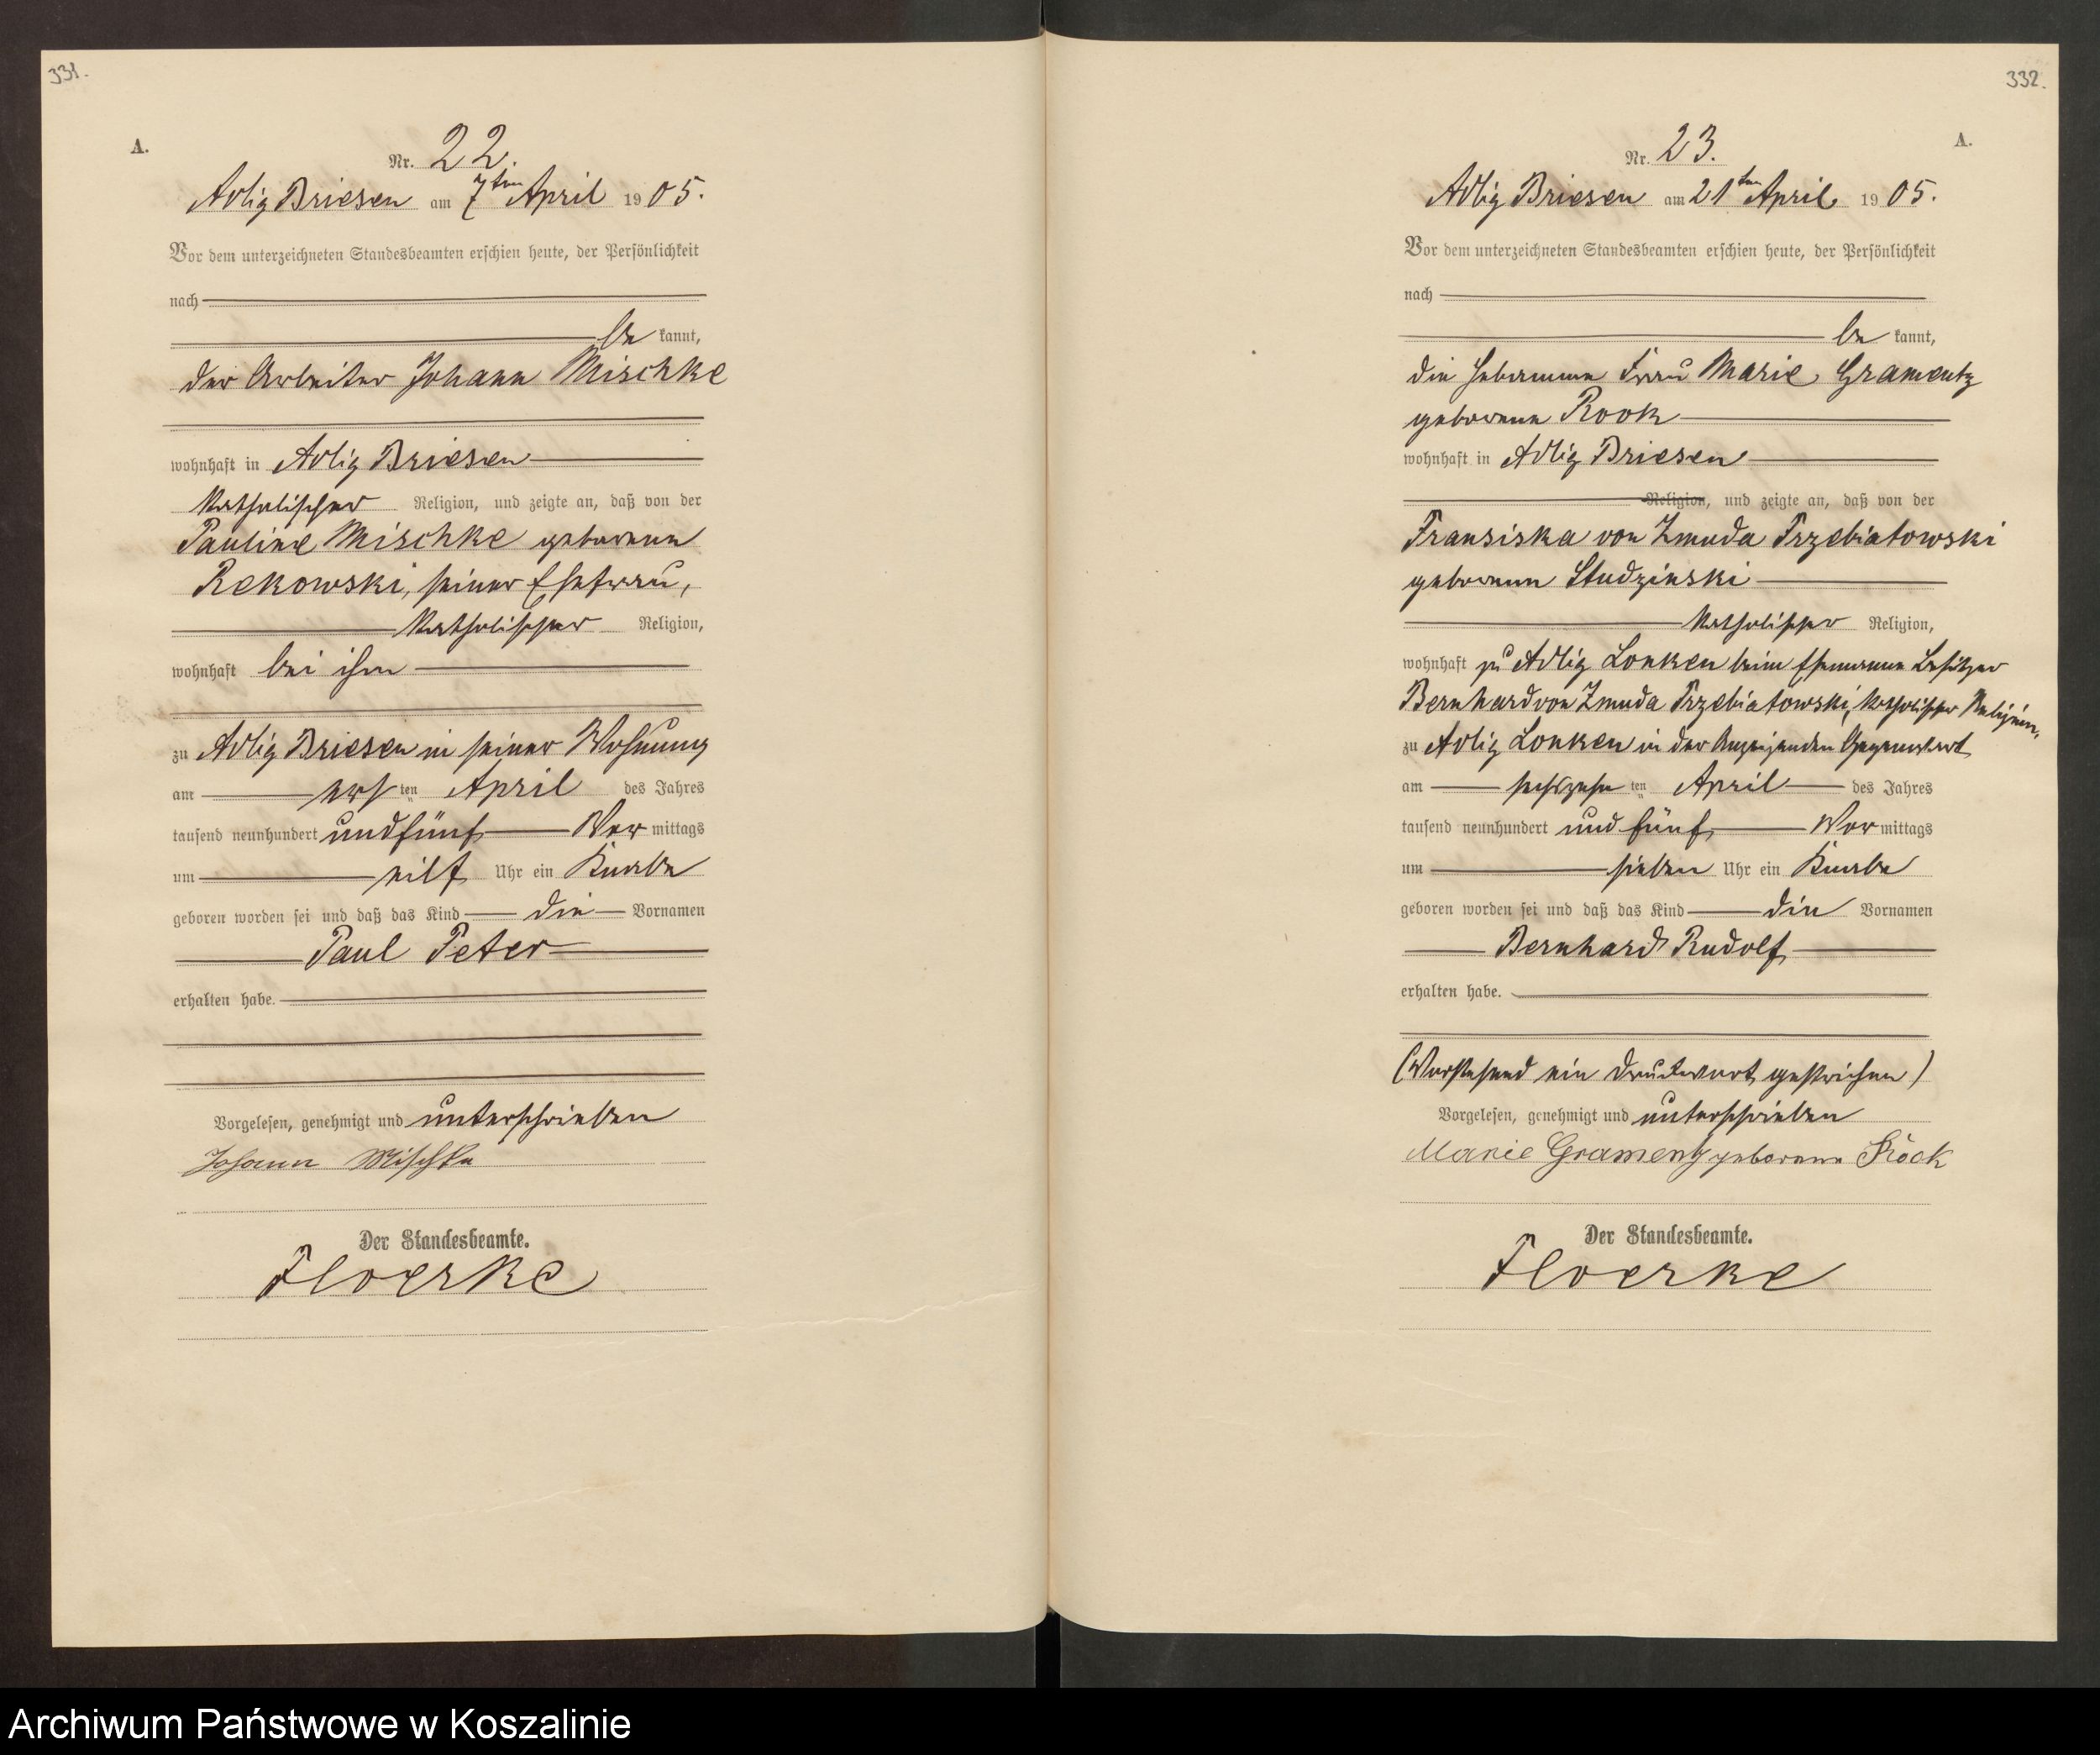 331.
A.
Nr. 22.
Adlig Briesen am 7ten April 1905.
Vor dem unterzeichneten Standesbeamten erschien heute, der Persönlichkeit
nach
be kannt,
der Arbeiter Johann Mischke
wohnhaft in Adlig Briesen
katholischer Religion, und zeigte an, daß von der
Pauline Mischke geborenen
Rekowski, seiner Ehefrau,
katholischer Religion,
wohnhaft bei ihm
zu Adlig Briesen in seiner Wohnung
am ersten April des Jahres
tausend neunhundert und fünf Vor mittags
um elf Uhr ein Knabe
geboren worden sei und daß das Kind die Vornamen
Paul Peter
erhalten habe.
Vorgelesen, genehmigt und unterschrieben
Johann Mischke
Der Standesbeamte.
Floerke
332.
A.
Nr. 23.
Adlig Briesen am 21ten April 1905.
Vor dem unterzeichneten Standesbeamten erschien heute, der Persönlichkeit
nach
be kannt,
die Hebamme Frau Marie Gramentz
geborene Rook
wohnhaft in Adlig Briesen
Religion, und zeigte an, daß von der
Fransiska von Zmuda Trzebiatowski
geborenen Studzinski
katholischer Religion,
wohnhaft zu Adlig Lonken beim Ehemanne Besitzer
Bernhard von Zmuda Trzebiatowski, katholischer Religion,
zu Adlig Lonken in der Anzeigenden Gegenwart
am sechszehnten April des Jahres
tausend neunhundert und fünf Vor mittags
um sieben Uhr ein Knabe
geboren worden sei und daß das Kind die Vornamen
Bernhard Rudolf
erhalten habe.
(Vorstehend ein Druckwort gestrichen)
Vorgelesen, genehmigt und unterschrieben
Marie Gramentz geborene Röok
Der Standesbeamte.
Floerke
Archiwum Państwowe w Koszalinie